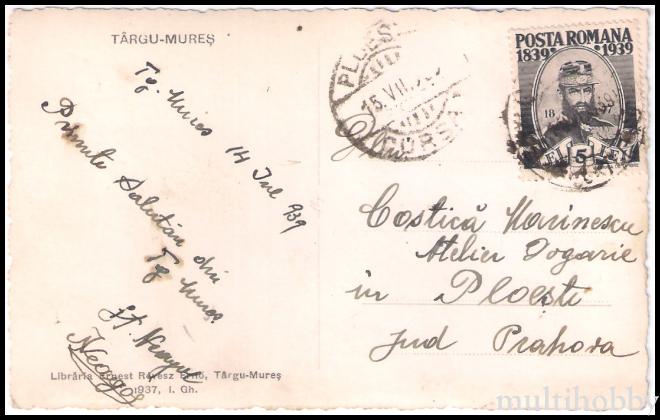 TÂRGU-MUREȘ
Tg. Mures 14 Iul 939
Primiti Salutări din
Tg Mures
Librăria Ernest Révész Ernö, Târgu-Mureș
1937, i. Gh.
PLOEȘ
15.VII.
CURSA
POSTA ROMANA
1839 1939
18
LEI 5 LEI
Costică Marinescu
Atelier Dogarie
in Ploești
Jud Prahova
multihobby